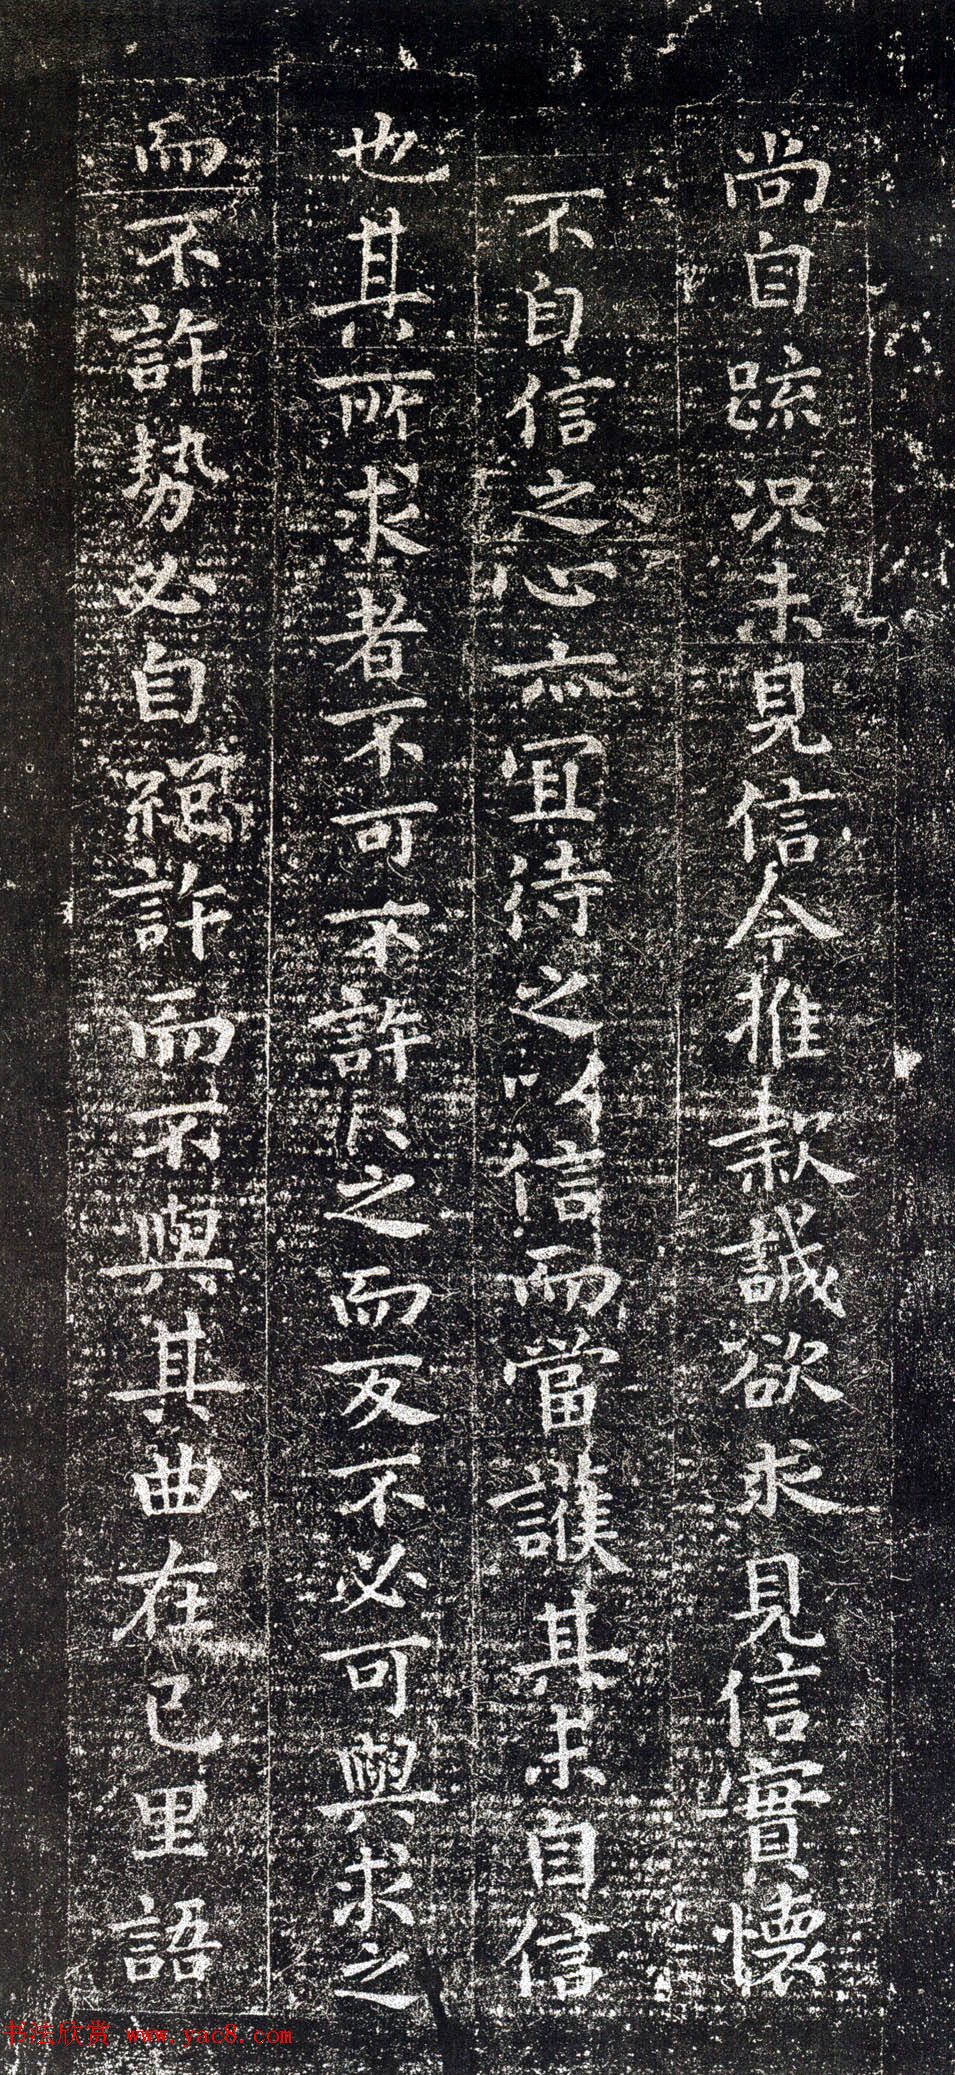 尚自疏况未見信今推款誠欲求見信實懷
不自信之心亦宜待之以信而當護其未自信
也其所求者不可不許許之而反不必可與求之
而不許勢必自絕許而不與其曲在己里語
书法欣赏 www.yac8.com